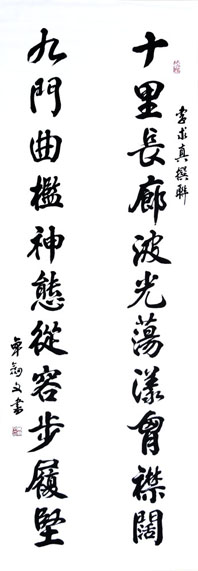 十里長廊波光蕩漾胷襟闊
李求真撰聯
九門曲檻神態從容步履堅
東劍文書